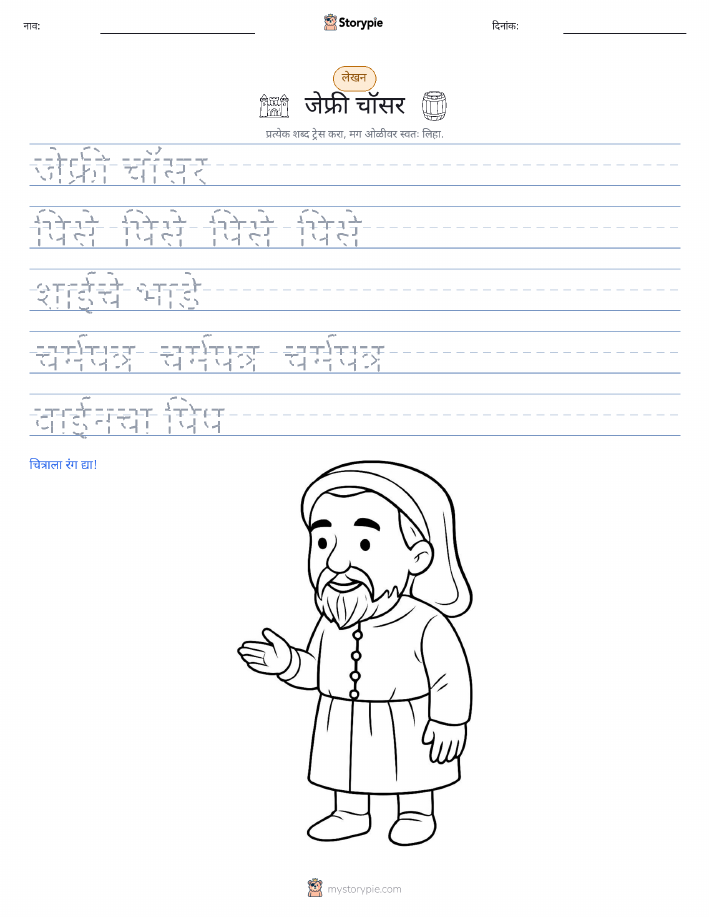 नाव:
Storypie
दिनांक:
लेखन
जेफ्री चॉसर
प्रत्येक शब्द ट्रेस करा, मग ओळीवर स्वतः लिहा.
जेफ्री चॉसर
पिसे पिसे पिसे पिसे
शाईचे भांडे
चर्मपत्र चर्मपत्र चर्मपत्र
वाईनचा पिंप
चित्राला रंग द्या!
mystorypie.com